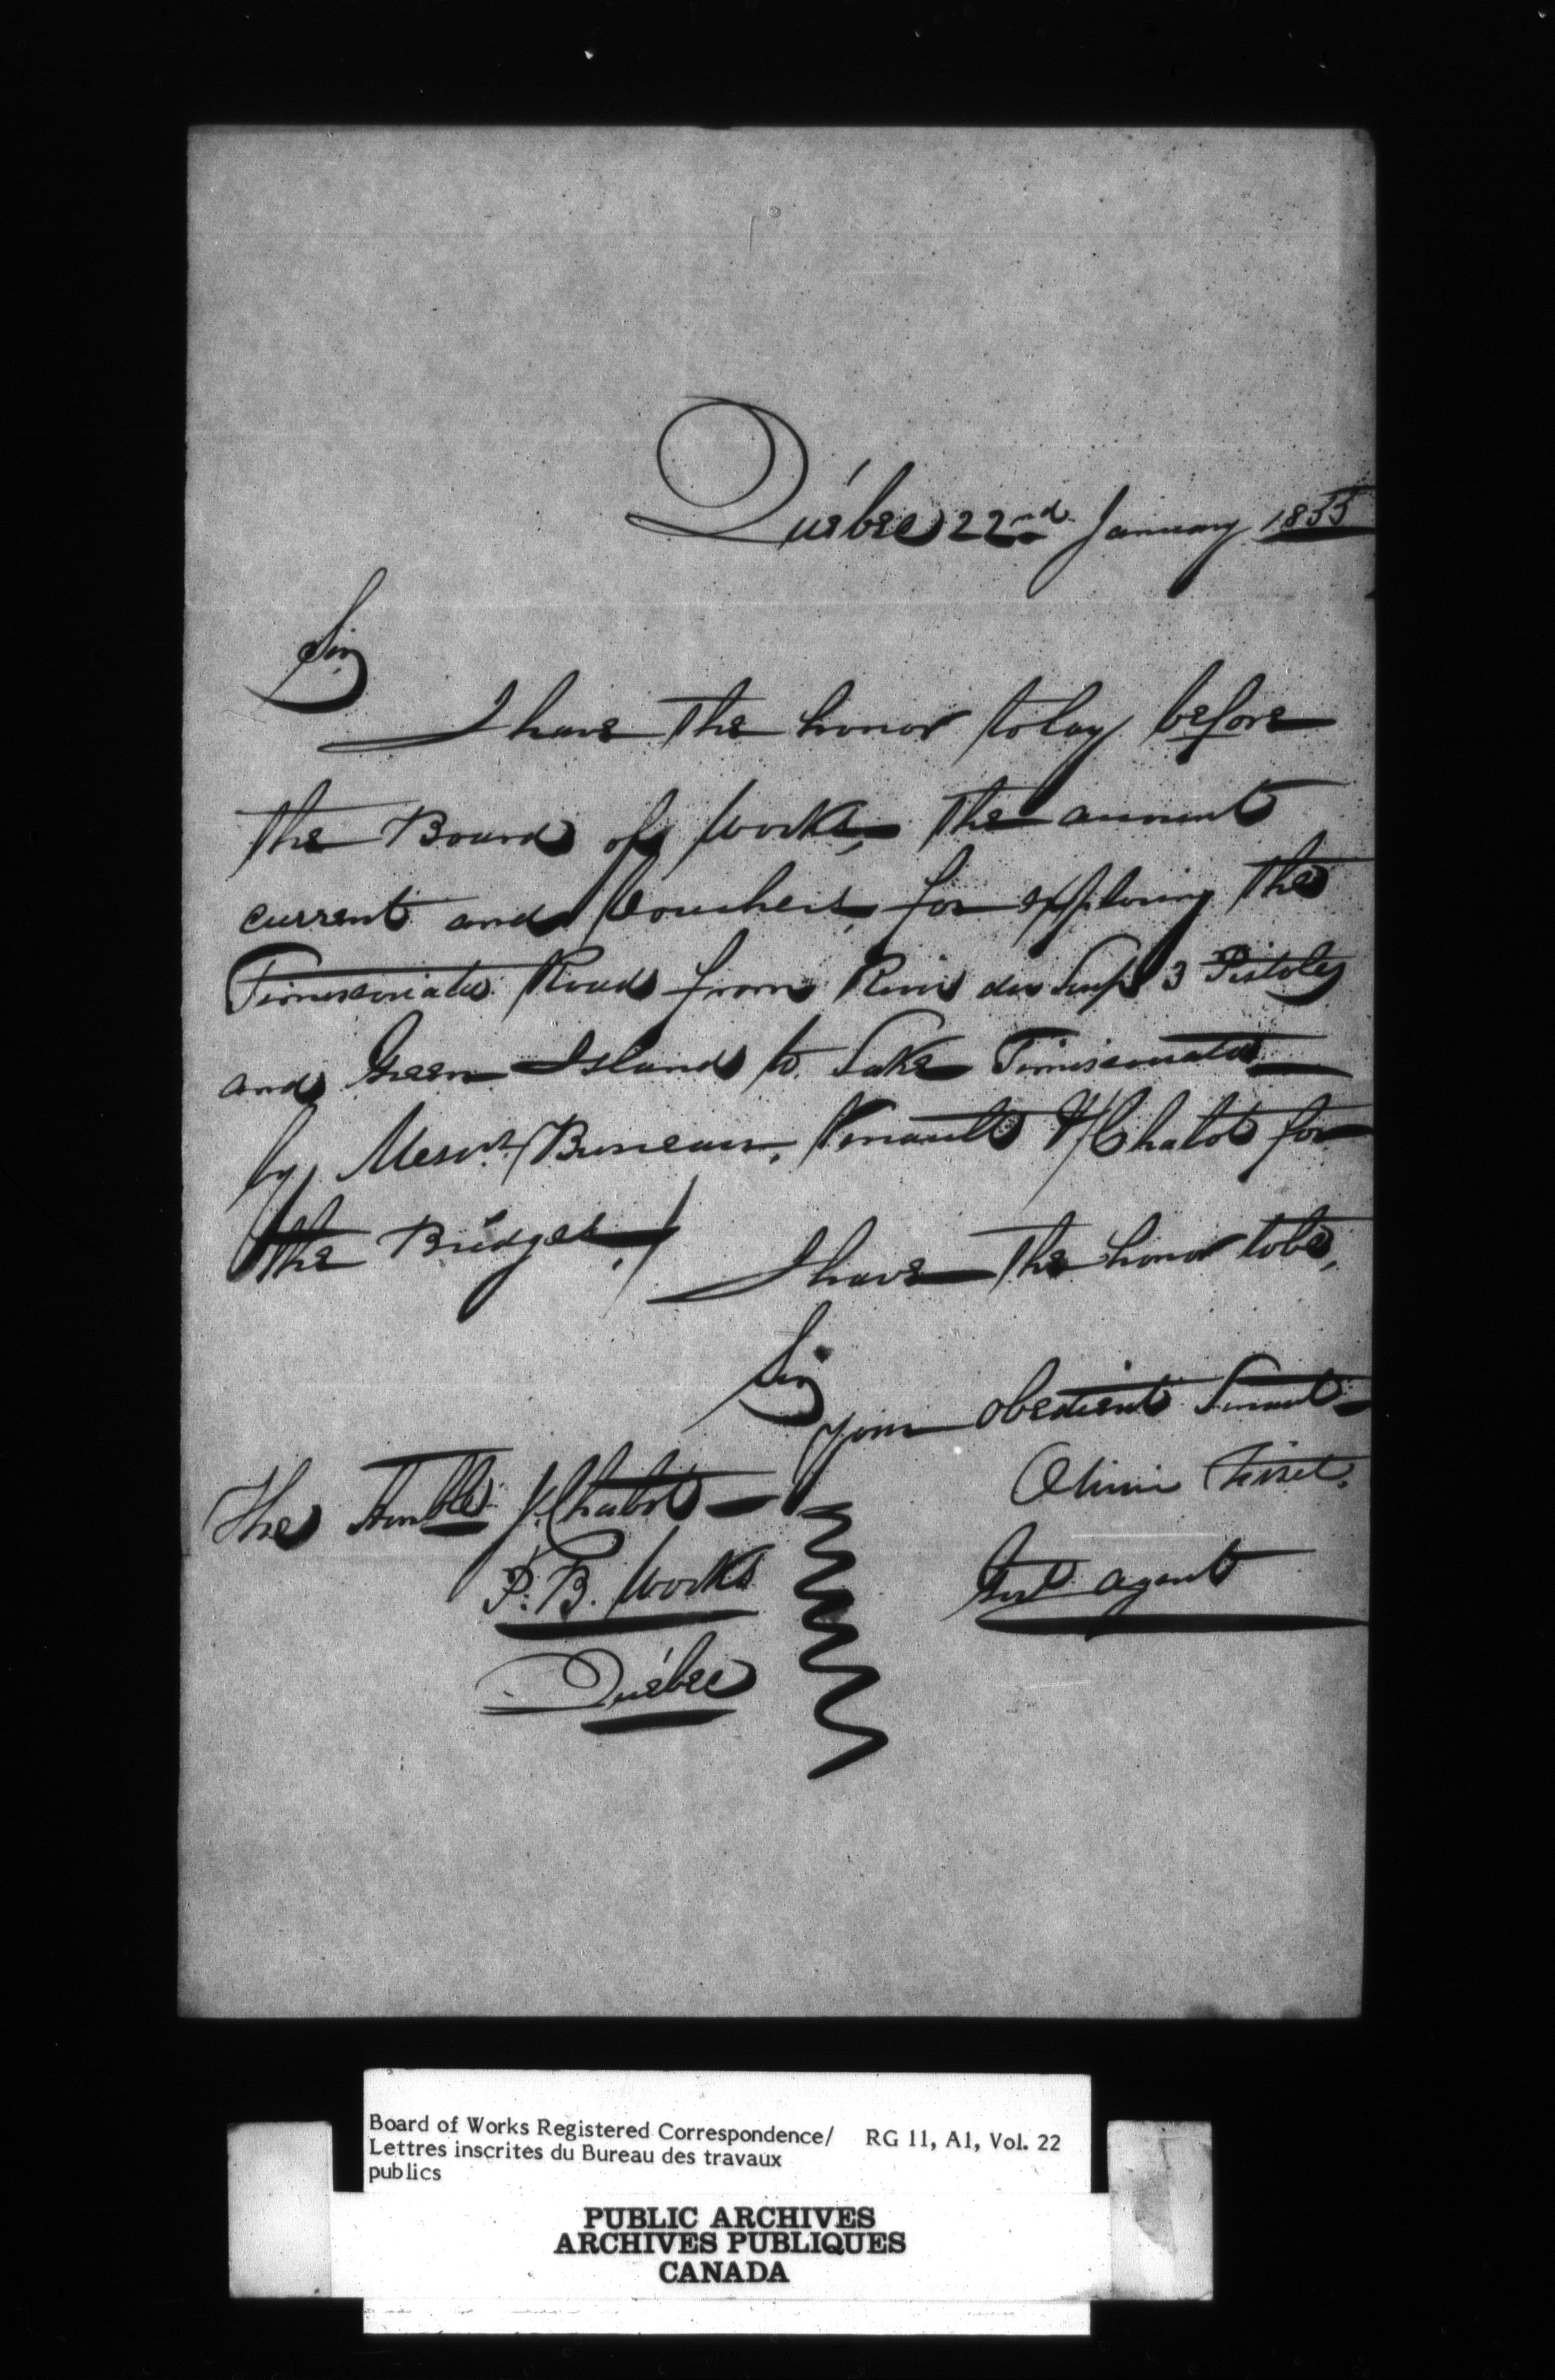 Québec 22nd January 1855
Sir
I have the honor to lay before
the Board of Works, the account
current and Vouchers, for exploring the
Temiscouata Road from Rivr du Loup 3 Pistoles
and Green Island to Lake Temiscouata
by Messrs. Bureau, & Chabot for
the Bridges,
I have the honor to be,
Sir
your obedient Servant
The Honble J. Chabot
Tisset.
P. B. Works
agent
Québec
Board of Works Registered Correspondence/ RG 11, A1, Vol. 22
Lettres inscrites du Bureau des travaux
publics
PUBLIC ARCHIVES
ARCHIVES PUBLIQUES
CANADA